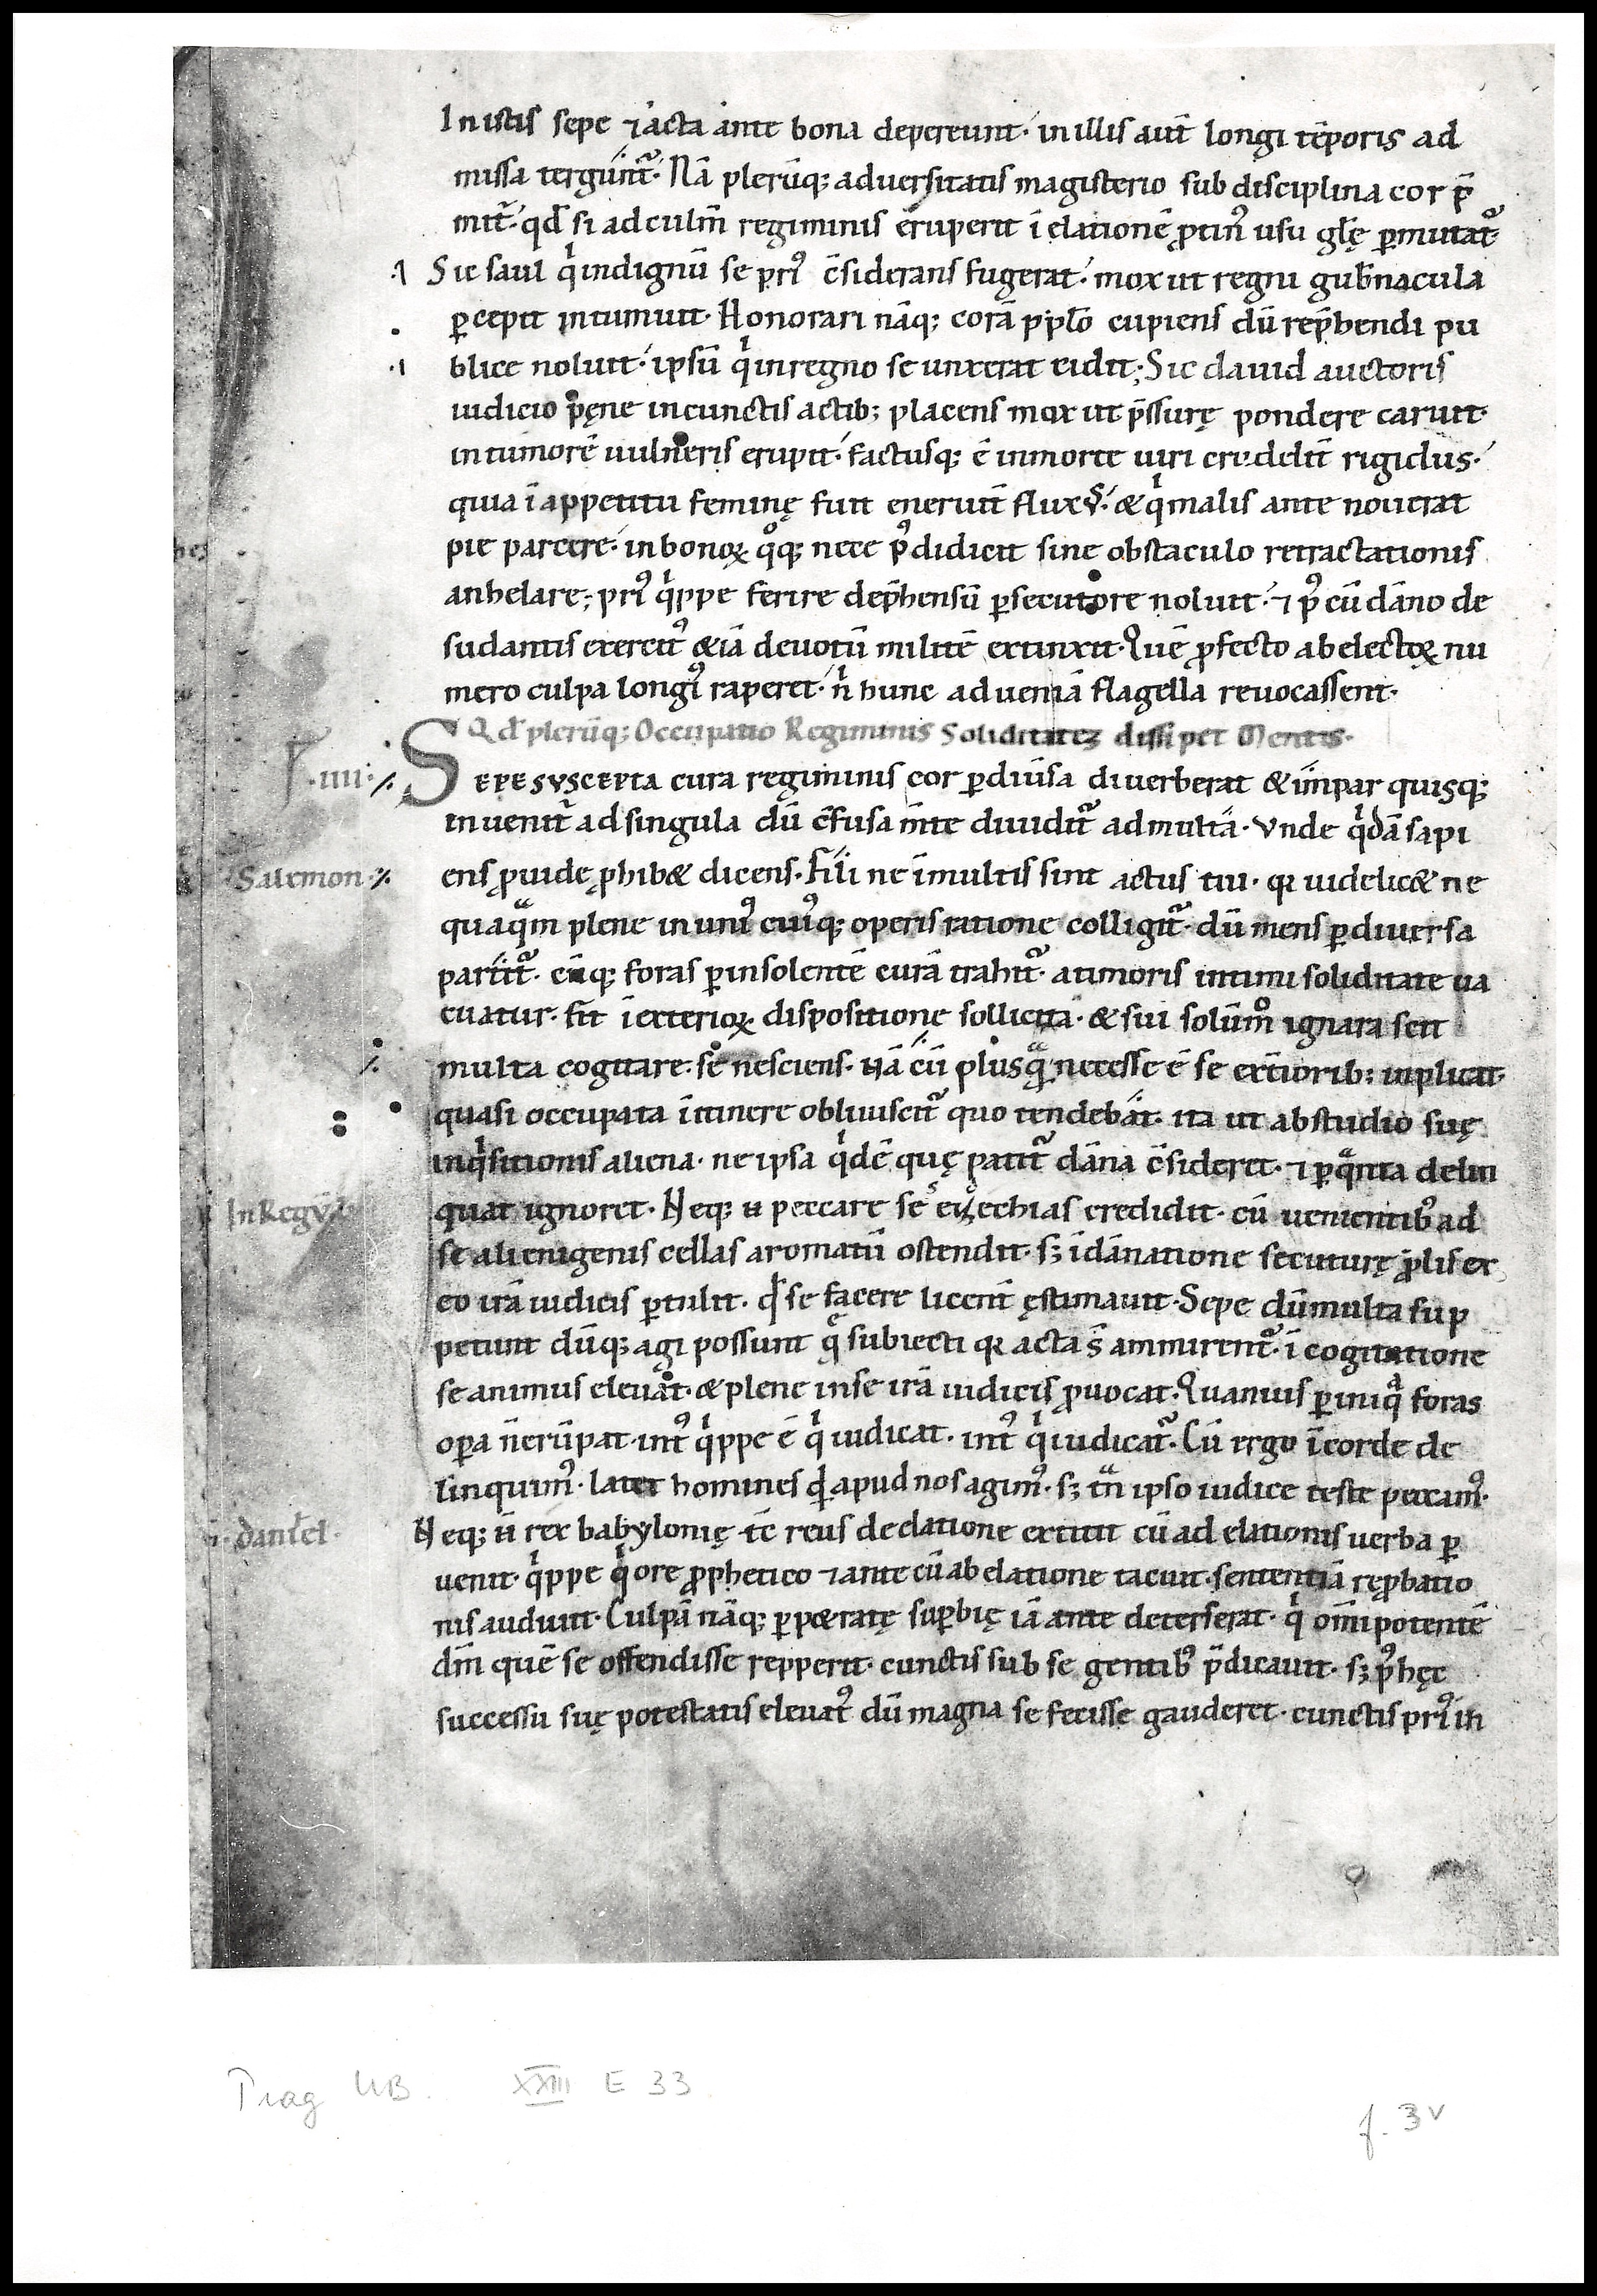 In istis sepe ⁊ acta ante bona depereunt· in illis aut̄ longi tēporis ad
missa tergunt̃· Nā plerūq; aduersitatis magisterio sub disciplina cor p̄
mit̃· qđ si ad culm̄ regiminis eruperit ī elationē ꝓtin᾽ usu glę ꝑmutat̃·
Sic saul qͥ indignū se pri᾽ c̄siderans fugerat· mox ut regni gub̄nacula
ꝑcepit intumuit· Honorari nāq; corā pplo̅ cupiens dū rep̄hendi pu
blice noluit· ipsū qͥ in regno se unxerat cidit; Sic dauid auctoris
iudicio pęne in cunctis actib; placens mox ut p̄ssurę pondere caruit·
in tumorē uulneris erupit· factusq; ē in morte uiri crudelit̄ rigidus·
quia ī appetitu feminę fuit eneruit̄ fluxus· & qͥ malis ante nouerat
pie parcere· in bonoꝝ qͦq; nece p᾽ didicit sine obstaculo retractationis
anhelare; pri᾽ qͥppe ferire dep̄hensū ꝑsecutore noluit· ⁊ p᾽ cū dāno de
sudantis exercit᾽ &iā deuotū militē extinxit· Quē ꝓfecto ab electoꝝ nu
mero culpa longi᾽ raperet· n̄ hunc ad ueniā flagella reuocassent·
Qđ plerūq; Occupatio Regiminis Soliditatez dissipet Mentis·
·iiii· SEPE SVSCEPTA cura regiminis cor ꝑ diūsa diuerberat & īmpar quisq;
inuenit̃ ad singula dū c̄fusa m̄te diuidit̃ ad multa· Vnde qͥdā sapi
Salemon· ens ꝓuide ꝓhib& dicens· Fili ne ī multis sint actus tui· qꝛ uidelic& ne
quaqͣm plene in uni᾽ cui᾽q; operis ratione colligit̃· dū mens ꝑ diuersa
partit̃· cūq; foras ꝑ insolentē curā trahit̃· a timoris intimi soliditate ua
cuatur· fit ī exterioꝝ dispositione sollicita· & sui solūmͦ ignara scit
multa cogitare· se nesciens· Nā cū plusqͣ necesse ē se ext̄iorib; inplicat·
quasi occupata ī itinere obliuiscit̃ quo tendebat· ita ut ab studio suę
inqͥsitionis aliena· ne ipsa qͥdē quę patit̃ dāna c̄sideret· ⁊ ꝑ qͣnta delin
In Regū quat ignoret· Neq; n̄ peccare se ezechias credidit· cū uenientib᾽ ad
se alienigenis cellas aromatū ostendit· sꝫ ī dānatione secuturę ꝓlis ex
eo irā iudicis ꝑtulit· qđ se facere licent̄ ęstimauit· Sepe dū multa sup
petunt dūq; agi possunt qę subiecti qꝛ acta s̄ ammirent̃· ī cogitatione
se animus eleuat· & plene in se irā iudicis ꝓuocat· Quamuis ꝑ iniqͣ foras
oꝑa n̄ erūpat· int᾽ qͥppe ē qͥ iudicat· int᾽ qͥ iudicat̃· Cū ergo ī corde de
linquim᾽· latet homines qđ apud nos agim᾽· sꝫ tn̄ ipso iudice teste peccam᾽·
daniel· Neq; n̄ rex babylonię tc̄ reus de elatione extitit cū ad elationis uerba ꝑ
uenit· qͥppe qͥ ore ꝓphetico ⁊ ante cū ab elatione tacuit· sententiā reꝓbatio
nis audiuit· Culpā nāq; ꝑp&ratę suꝑbię iā ante deterserat· qͥ om̄ipotentē
dm̄ quē se offendisse repperit· cunctis sub se gentib᾽ p̄dicauit· sꝫ p᾽ hęc
successu suę potestatis eleuat᾽ dū magna se fecisse gauderet· cunctis pri᾽ in
Prag UB. XXIII E 33
f. 3v